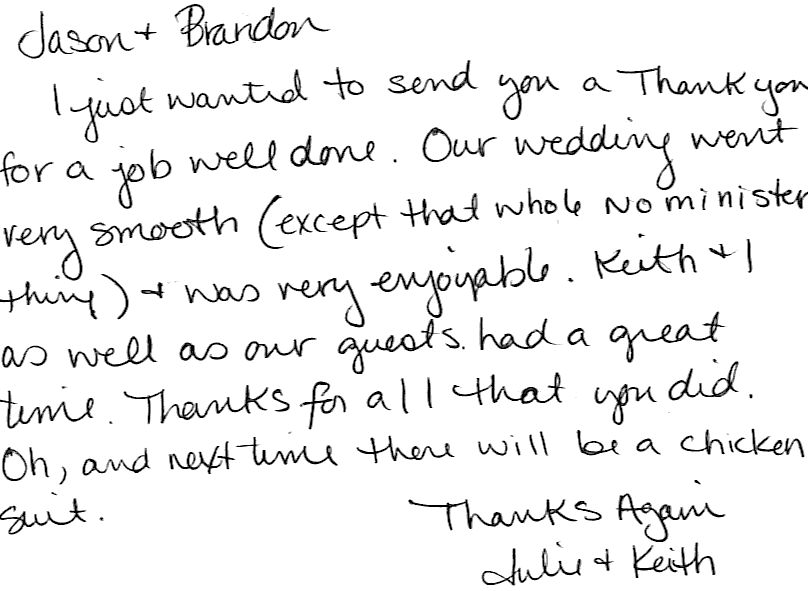 Jason + Brandon
I just wanted to send you a Thank you
for a job well done. Our wedding went
very smooth (except that whole no minister
thing) + was very enjoyable. Keith + I
as well as our guests. had a great
time. Thanks for all that you did.
Oh, and next time there will be a chicken
suit.
Thanks Again
Julie + Keith